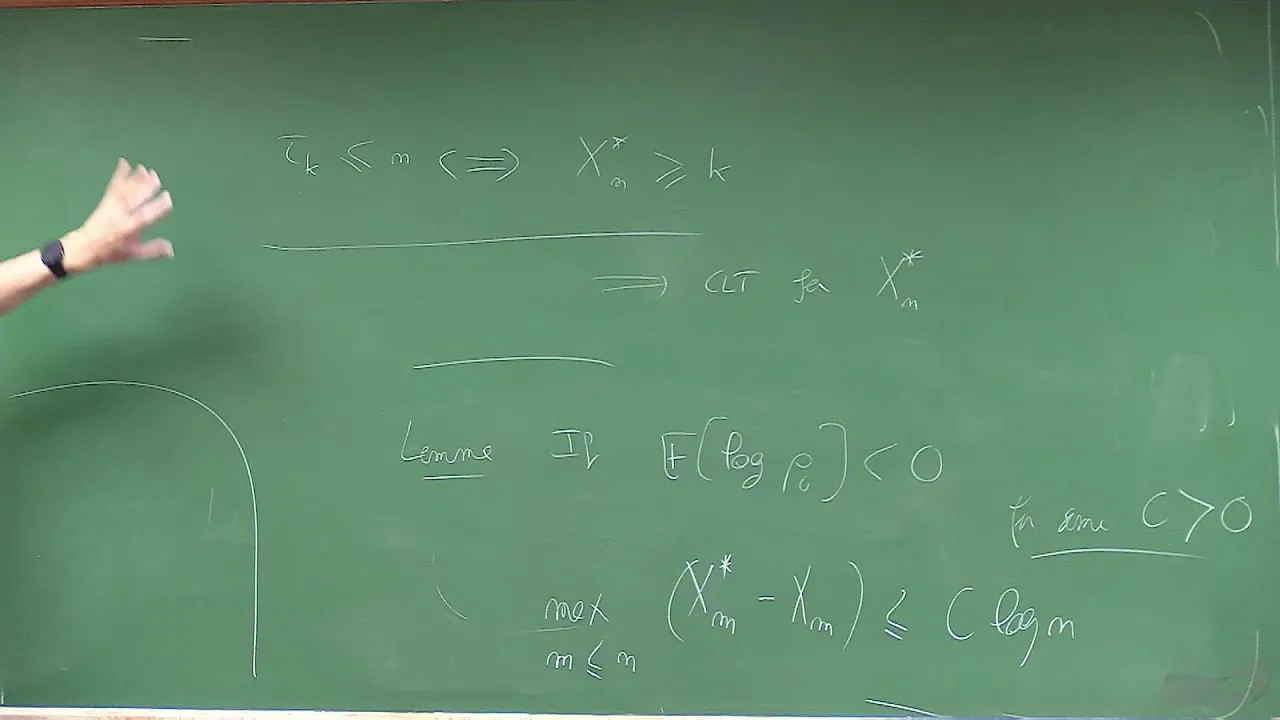 τ_k ≤ n ⟺ X*_n ≥ k
⟹ CLT for X*_n
Lemma If E[log ρ_0] < 0
for some C > 0
max_{m ≤ n} (X*_m - X_m) ≤ C log n